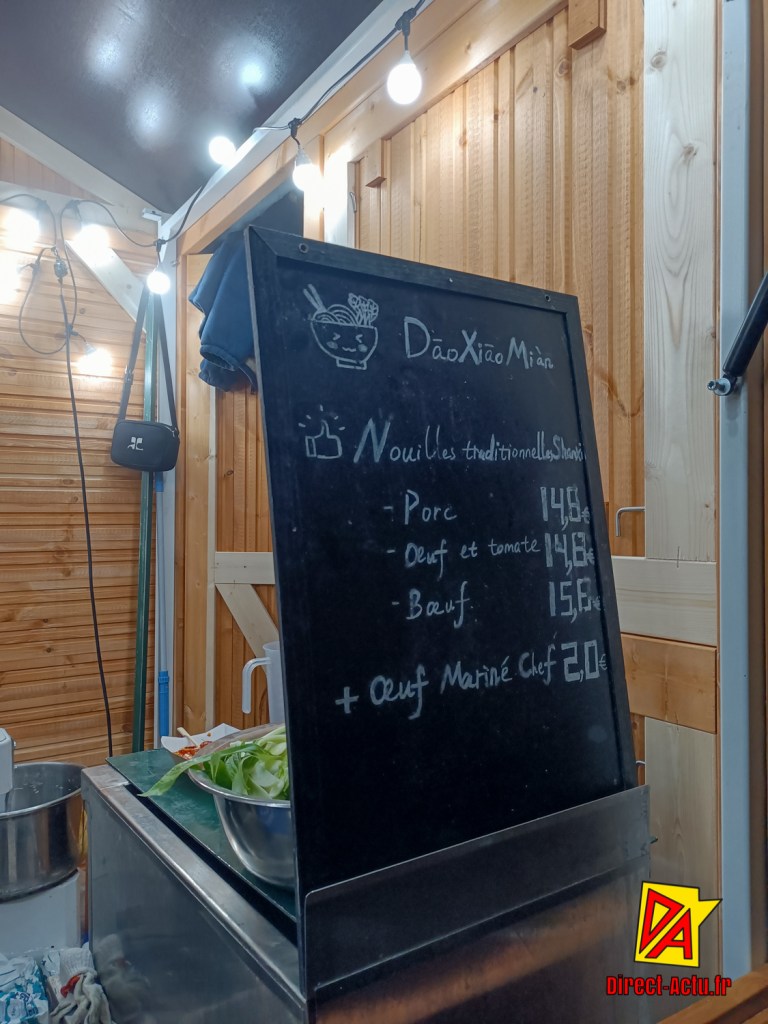 DāoXiāoMiàn
Nouilles traditionnelles Shanxi
- Porc 14,8€
- Œuf et tomate 14,8€
- Bœuf 15,8€
+ Œuf Mariné Chef 2,0€
DA
Direct-Actu.fr